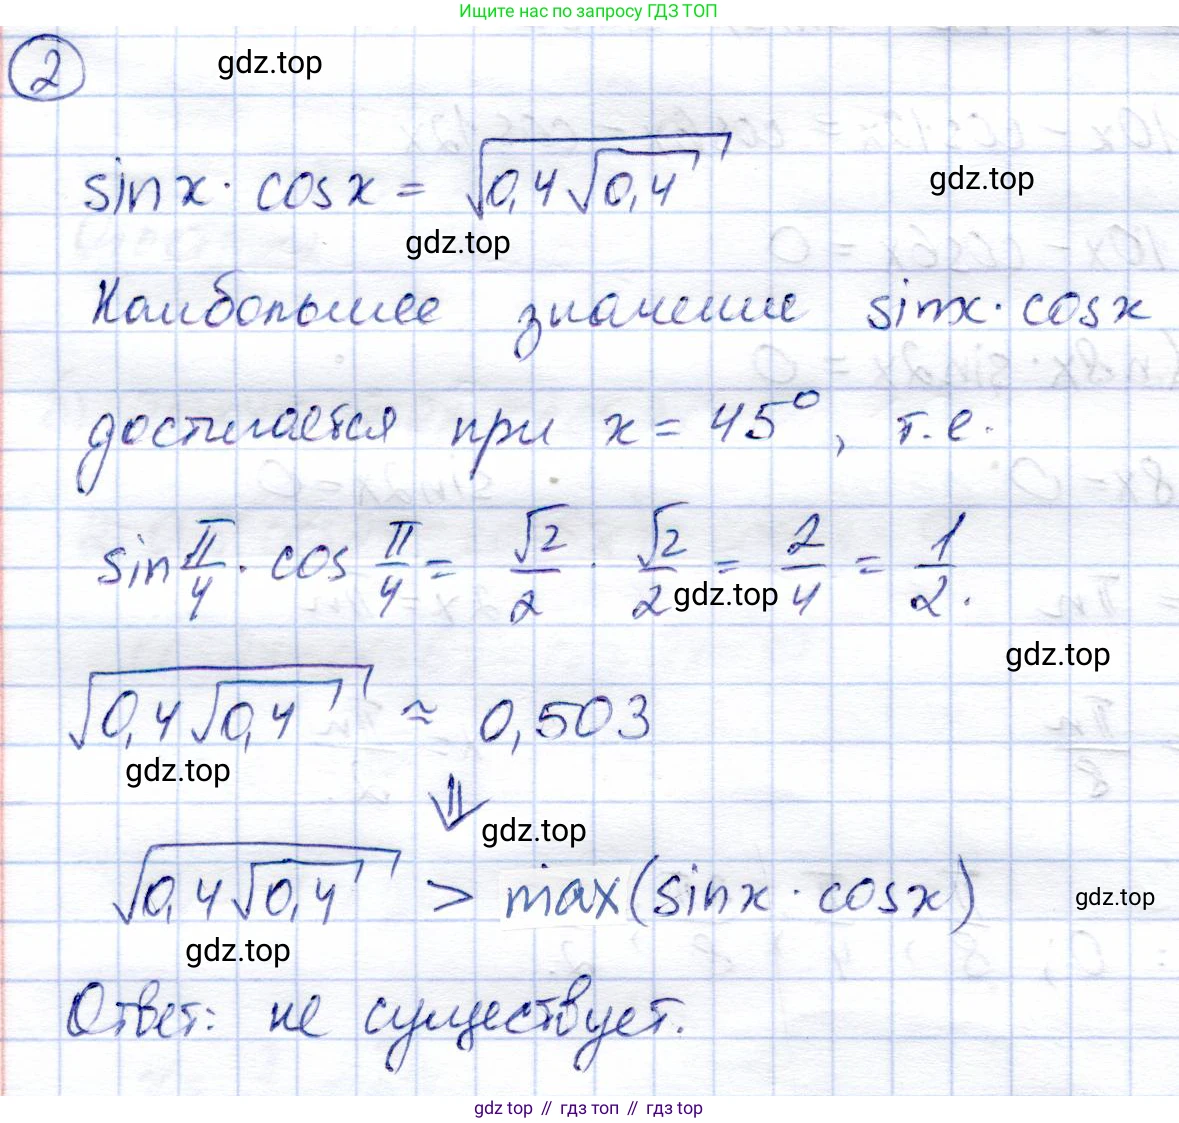 Ищите нас по запросу ГДЗ ТОП
2
gdz.top
sin x · cos x = √(0,4√(0,4))
gdz.top
gdz.top
Наибольшее значение sin x · cos x
достигается при x = 45°, т.е.
sin π/4 · cos π/4 = √2/2 · √2/2 = 2/4 = 1/2.
gdz.top
gdz.top
√(0,4√(0,4)) ≈ 0,503
gdz.top
⇓
gdz.top
√(0,4√(0,4)) > max(sin x · cos x)
gdz.top
gdz.top
Ответ: не существует.
gdz top // гдз топ // гдз top